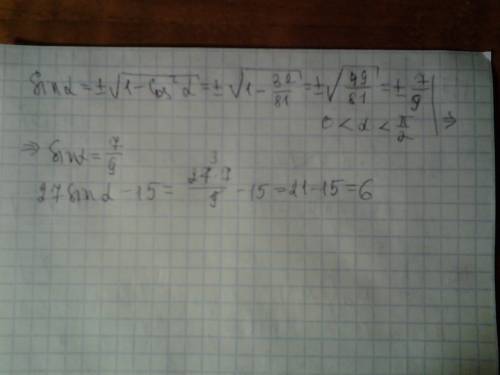 sin α = ±√(1 - cos² α) = ±√(1 - 32/81) = ±√(49/81) = ±7/9 |
0 < α < π/2 | ⇒
⇒ sin α = 7/9
27 sin α - 15 = 27·7/9 - 15 = 21 - 15 = 6